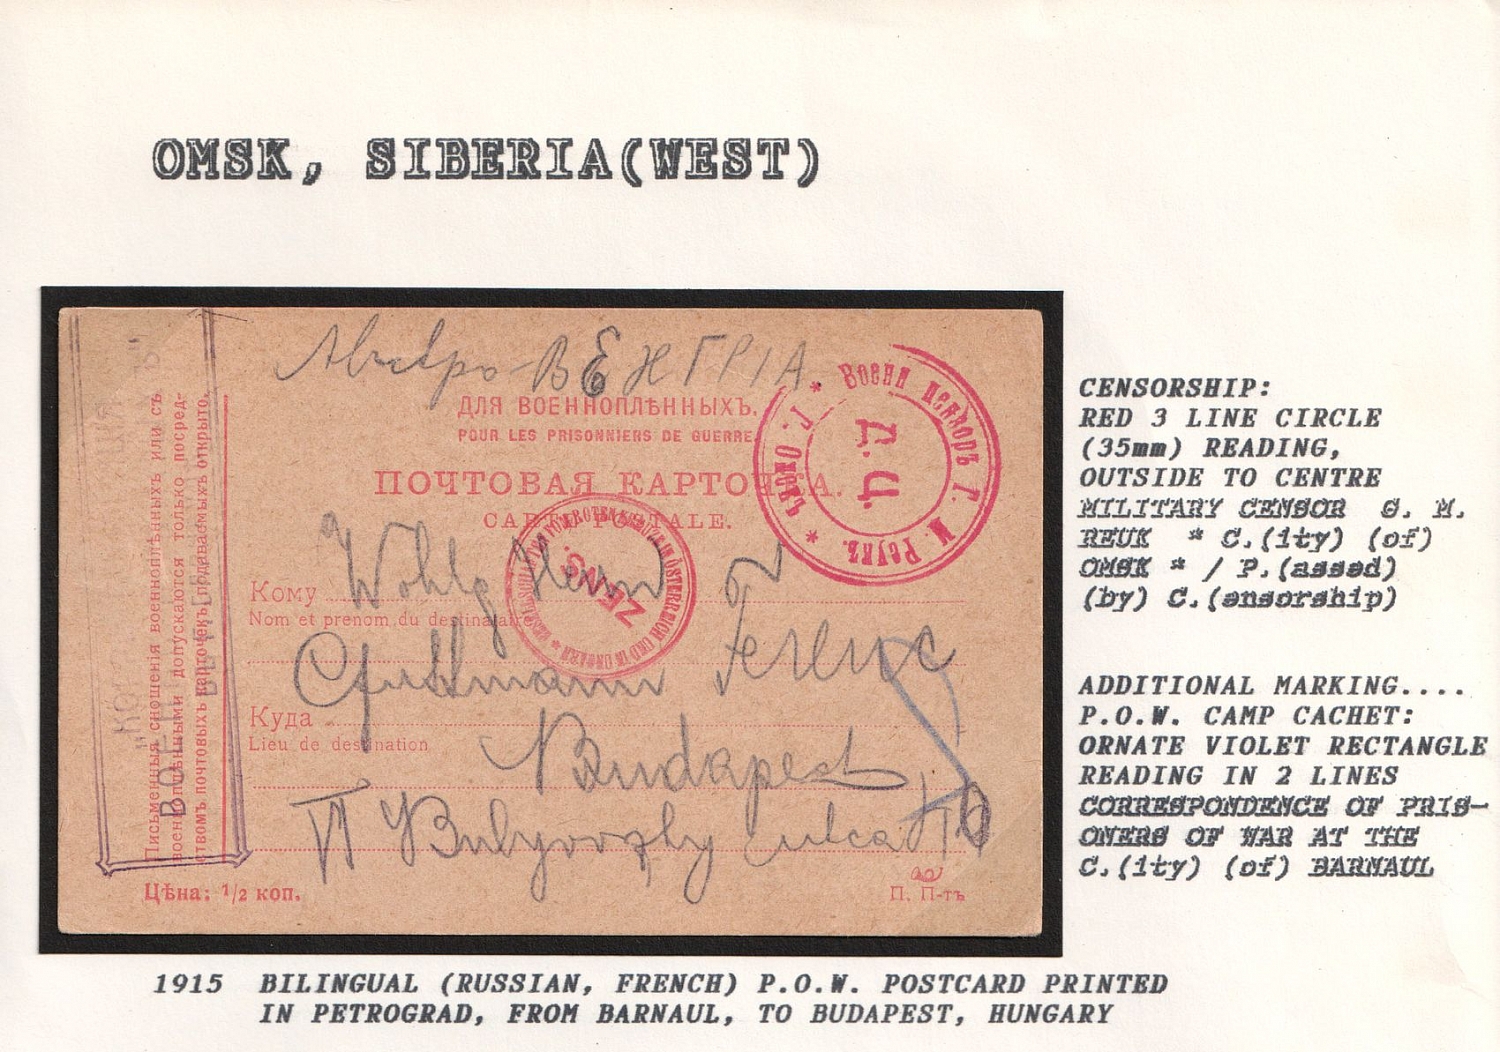 OMSK, SIBERIA(WEST)
Австро-ВЕНГРІА.
ДЛЯ ВОЕННОПЛѢННЫХЪ.
POUR LES PRISONNIERS DE GUERRE.
ПОЧТОВАЯ КАРТОЧКА.
CARTE POSTALE.
Военн цензоръ Г. М. Реукъ * Г. Омскъ *
Д. Ц.
ZENS.
Кому
Nom et prenom du destinataire
Wohlg Herrn
Ferenc
Куда
Lieu de destination
Budapest
VI
utca
Письменныя сношенія военноплѣнныхъ или съ
военноплѣнными допускаются только посред-
ствомъ почтовыхъ карточекъ, подаваемыхъ открыто.
ВОЕН
Цѣна: 1/2 коп.
П. П-тъ
CENSORSHIP:
RED 3 LINE CIRCLE
(35mm) READING,
OUTSIDE TO CENTRE
MILITARY CENSOR G. M.
REUK * C.(ity) (of)
OMSK * / P.(assed)
(by) C.(ensorship)
ADDITIONAL MARKING....
P.O.W. CAMP CACHET:
ORNATE VIOLET RECTANGLE
READING IN 2 LINES
CORRESPONDENCE OF PRIS-
ONERS OF WAR AT THE
C.(ity) (of) BARNAUL
1915 BILINGUAL (RUSSIAN, FRENCH) P.O.W. POSTCARD PRINTED
IN PETROGRAD, FROM BARNAUL, TO BUDAPEST, HUNGARY